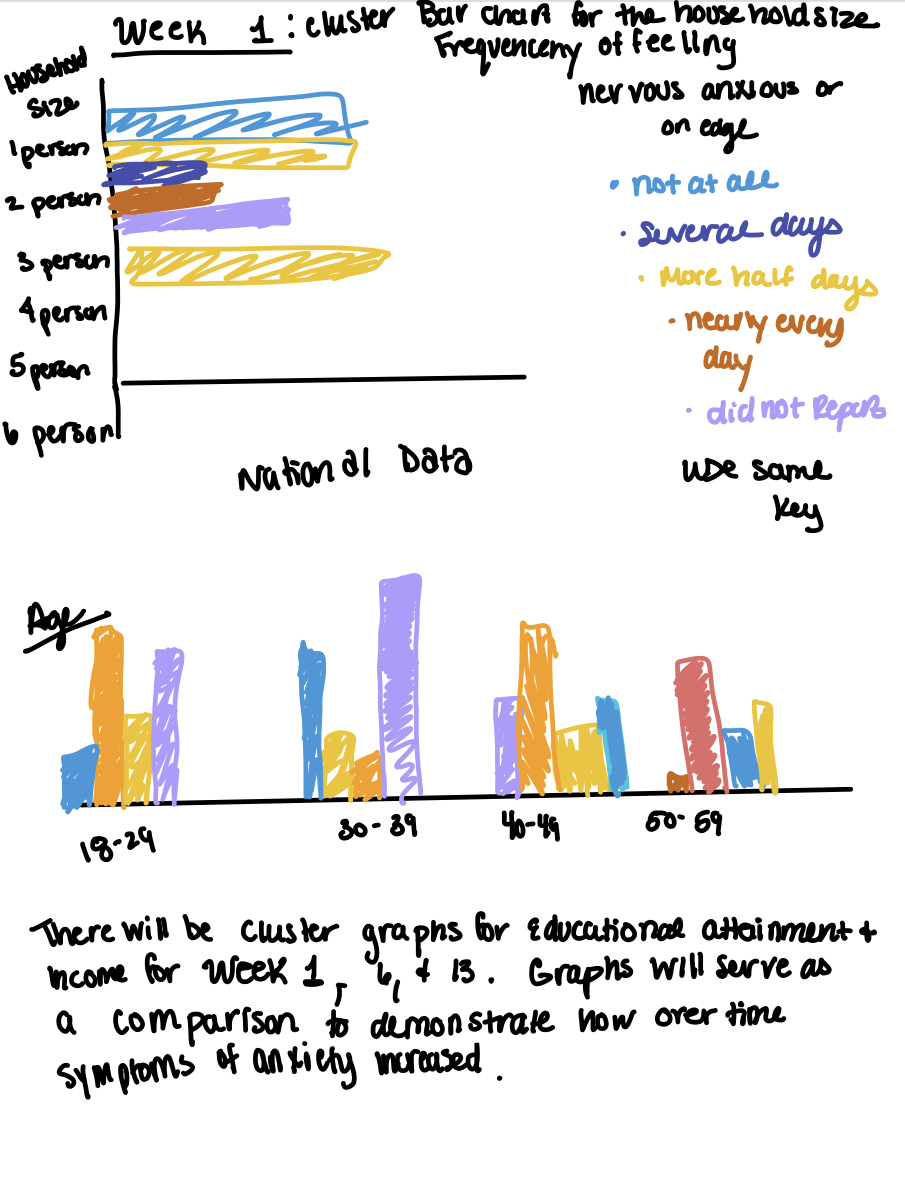 Week 1: cluster Bar chart for the household size
Frequencemy of feeling
nervous anxious or
on edge
Household
Size
1 person
2 person
3 person
4 person
5 person
6 person
• not at all
• Several days
• More half days
• nearly every
day
• did not Report
National Data
use same
key
Age
18-29
30-39
40-49
50-59
There will be cluster graphs for Educational attainment +
income for Week 1, 6, + 13. Graphs will serve as
a comparison to demonstrate how over time
symptoms of anxiety increased.